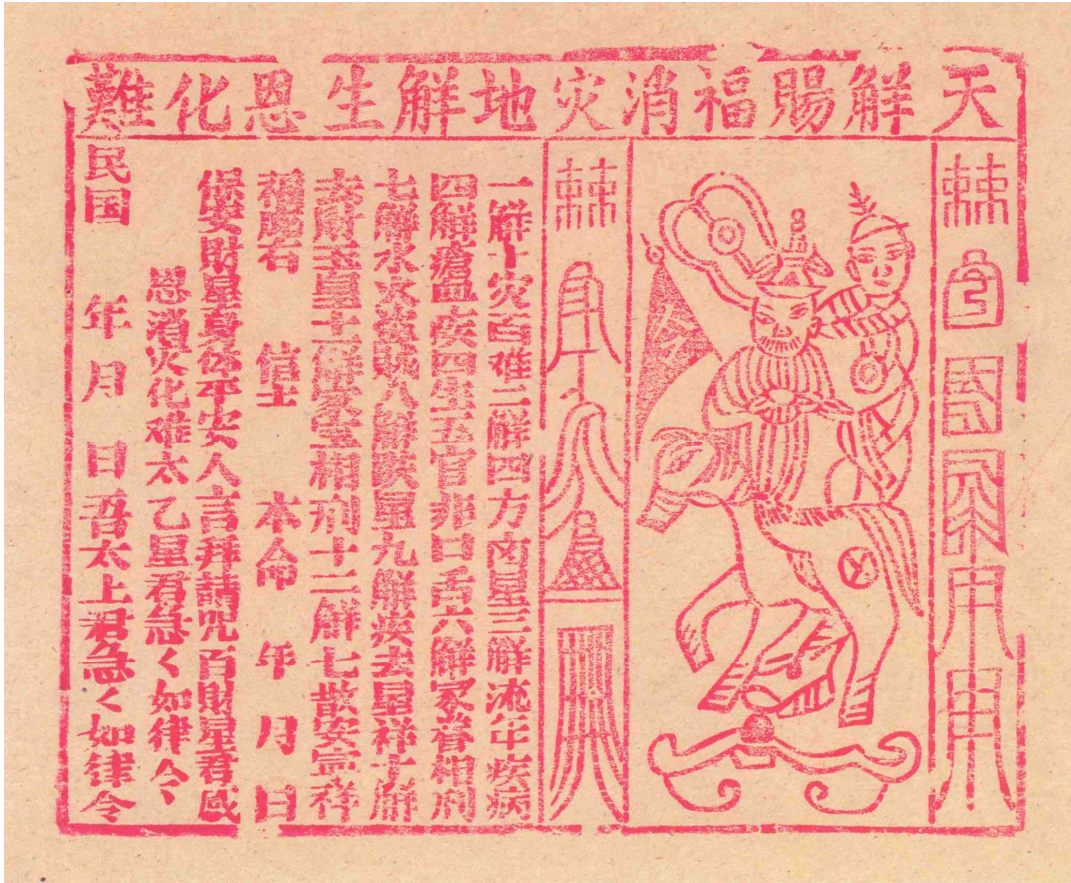 天解賜福消灾地解生恩化難
一解千灾百难二解四方凶星三解流年疾病
四解瘡血疾四生五官非口舌六解家眷相刑
七解水火盗贼八解跌墨九解疾去星祥十解
玉皇十一解家宅相刑十二解七散安宜祥
信士 本命 年月日
保安財星身体平安人言拜請咒百財星君感
恩消灾化难太乙星君急く如律令
民国 年月 日吾太上君急く如律令